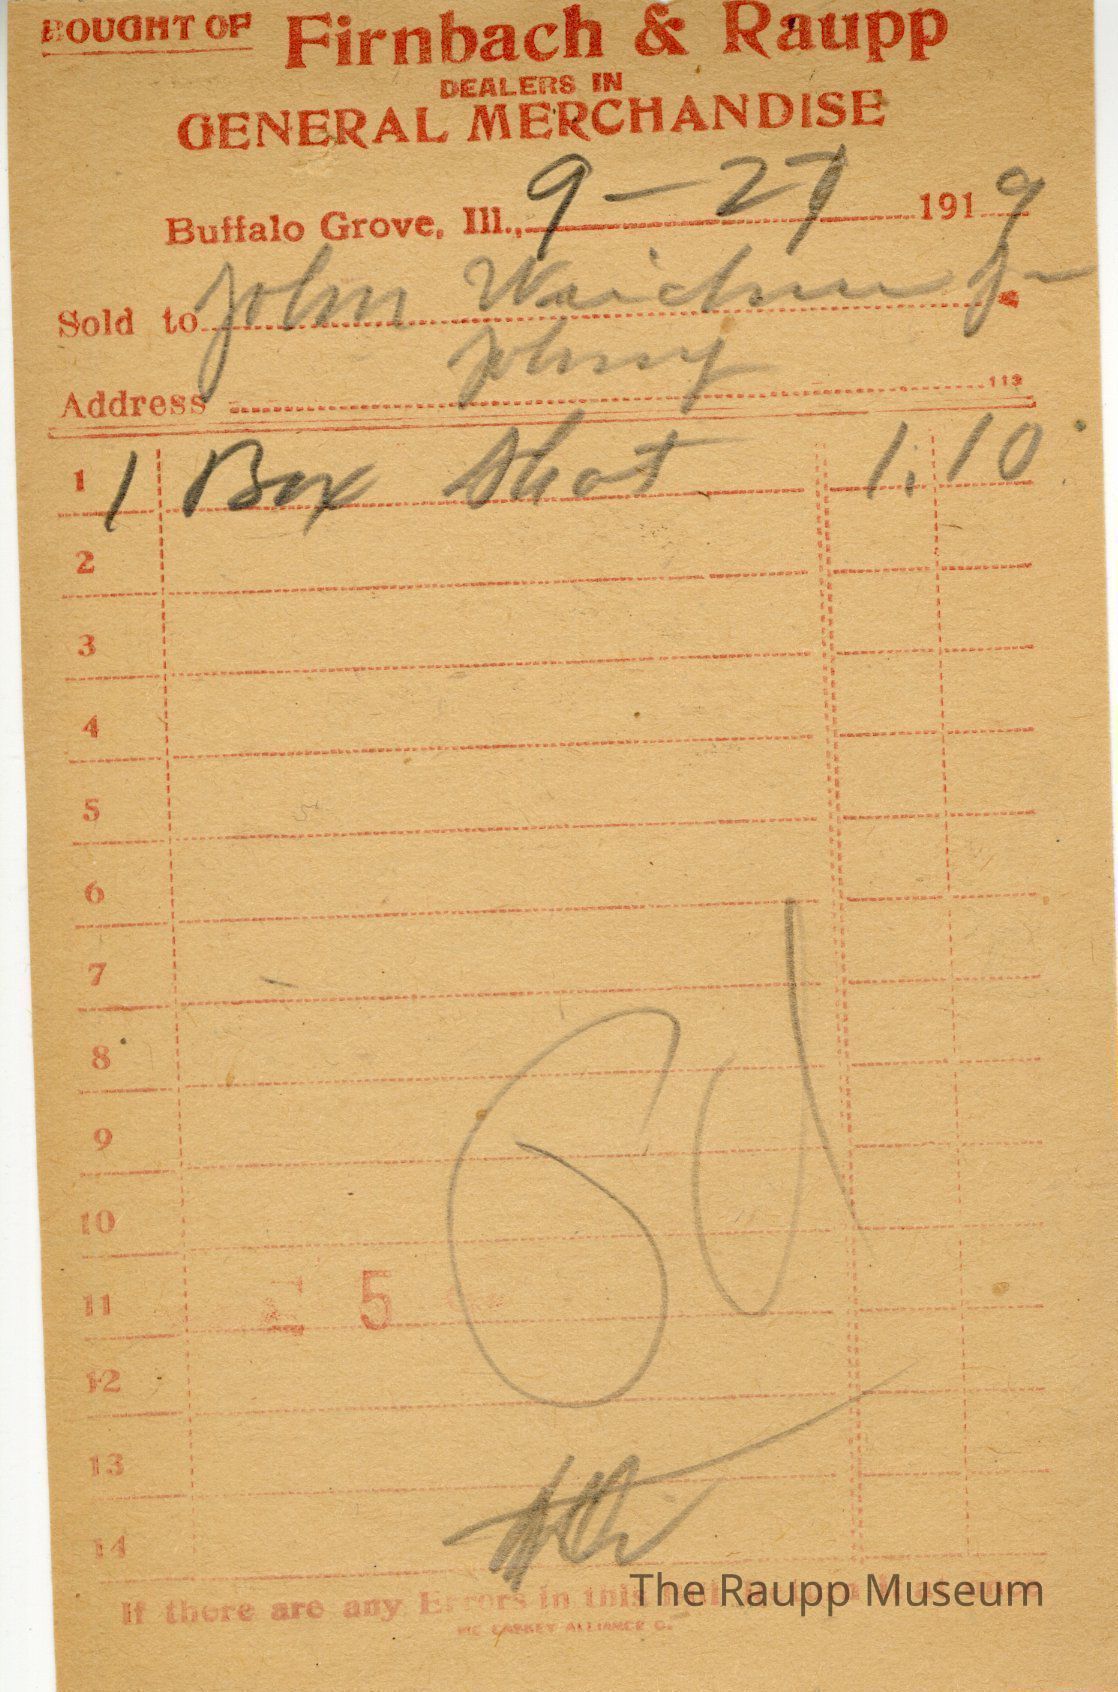 BOUGHT OF Firnbach & Raupp
DEALERS IN
GENERAL MERCHANDISE
Buffalo Grove, Ill., 9-27 1919
Sold to John Weidner Jr
Johny
Address 113
1 1 Box Shot 1.10
2
3
4
5
6
7
8
9
10
11 5
12
13
14
If there are any Errors in this
The Raupp Museum